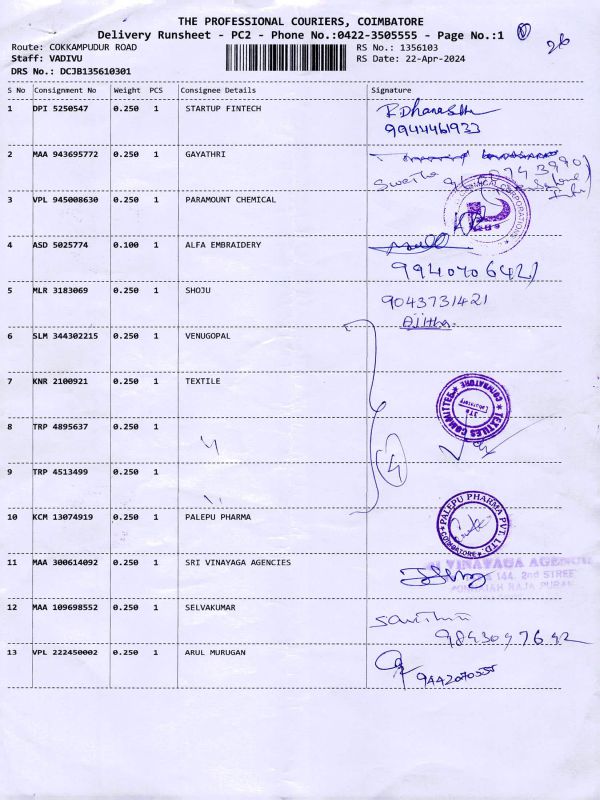 THE PROFESSIONAL COURIERS, COIMBATORE
Delivery Runsheet - PC2 - Phone No.:0422-3505555 - Page No.:1
26
Route: COKKAMPUDUR ROAD
RS No.: 1356103
Staff: VADIVU
RS Date: 22-Apr-2024
DRS No.: DCJB135610301
S No Consignment No Weight PCS Consignee Details Signature
1 DPI 5250547 0.250 1 STARTUP FINTECH
9944461933
2 MAA 943695772 0.250 1 GAYATHRI
3 VPL 945008630 0.250 1 PARAMOUNT CHEMICAL
4 ASD 5025774 0.100 1 ALFA EMBRAIDERY
9940706421
5 MLR 3183069 0.250 1 SHOJU 9043731421
Ajitha.
6 SLM 344302215 0.250 1 VENUGOPAL
7 KNR 2100921 0.250 1 TEXTILE
TEXTILES COMMITTEE COIMBATORE
8 TRP 4895637 0.250 1
4
9 TRP 4513499 0.250 1
10 KCM 13074919 0.250 1 PALEPU PHARMA
PALEPU PHARMA PVT. LTD. COIMBATORE
11 MAA 300614092 0.250 1 SRI VINAYAGA AGENCIES
VINAYAGA AGENC
144, 2nd STREE
RAJA PURAM
12 MAA 109698552 0.250 1 SELVAKUMAR
9843047642
13 VPL 222450002 0.250 1 ARUL MURUGAN
9442070555